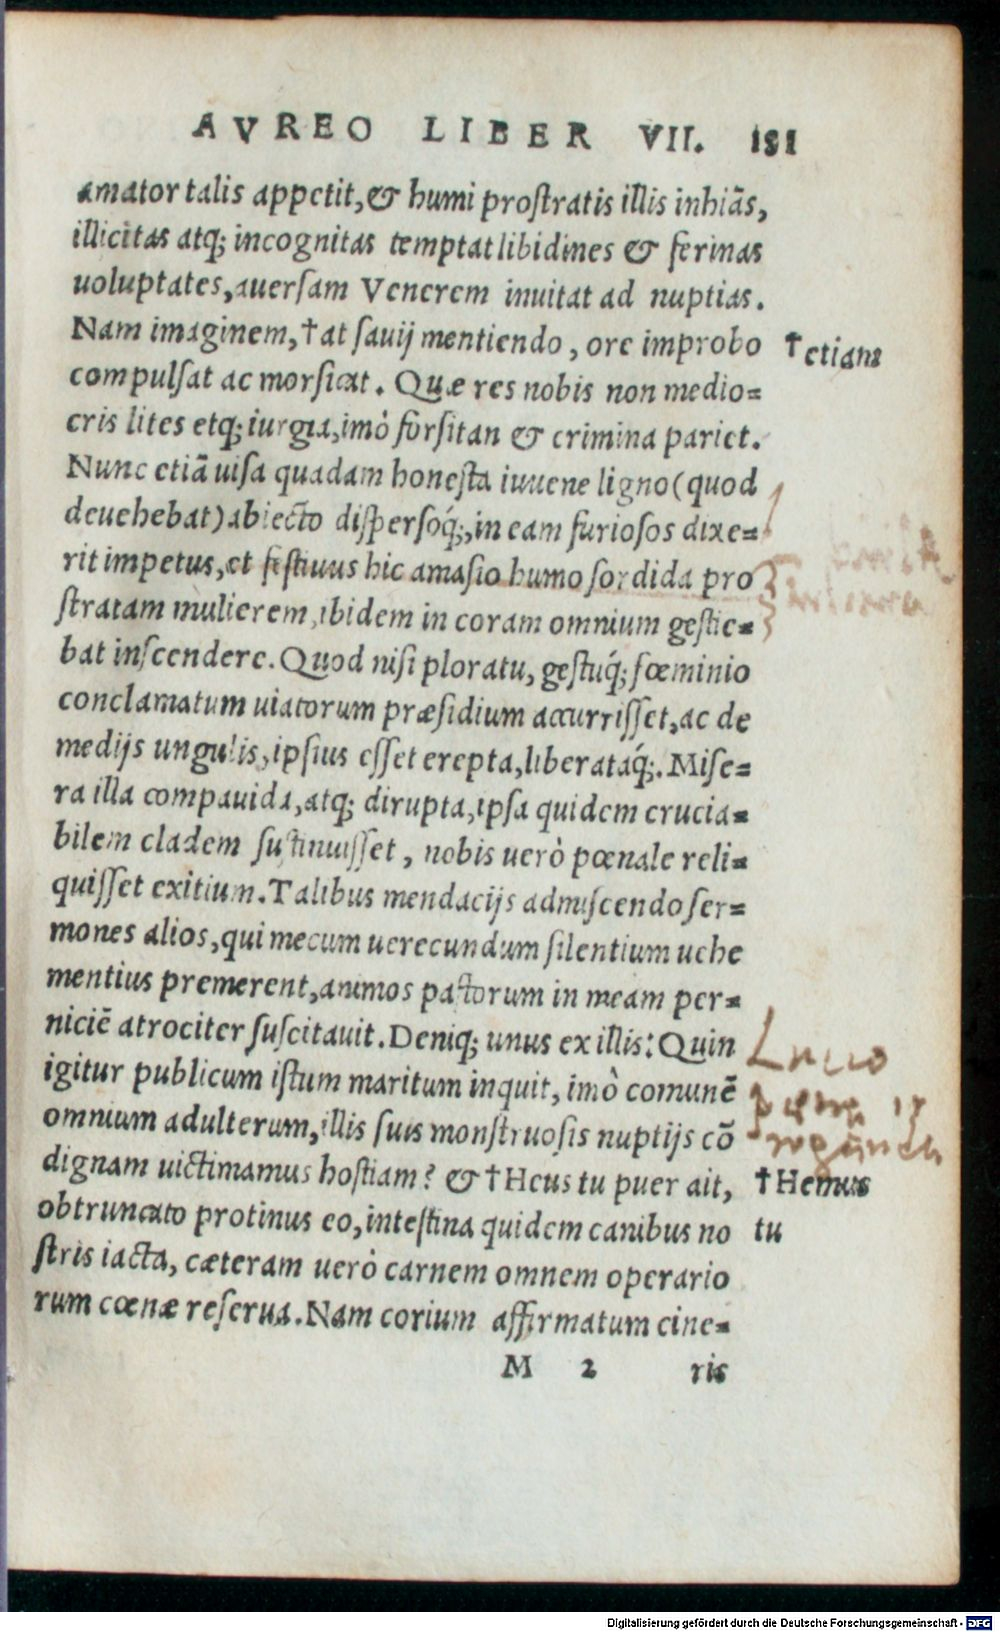 AVREO LIBER VII. 181
amator talis appetit, & humi proſtratis illis inhiãs,
illicitas atq; incognitas temptat libidines & ferinas
uoluptates, auerſam Venerem inuitat ad nuptias.
Nam imaginem, †at ſauij mentiendo, ore improbo
†etiam
compulſat ac morſicat. Quæ res nobis non medio=
cris lites etq; iurgia, imò forſitan & crimina pariet.
Nunc etiã uiſa quadam honeſta iuuene ligno (quod
deuehebat) abiecto diſperſoq́;, in eam furioſos dixe=
rit impetus, et feſtiuus hic amaſio humo ſordida pro
ſtratam mulierem, ibidem in coram omnium geſtie=
bat inſcendere. Quod niſi ploratu, geſtuq́; fœminio
conclamatum uiatorum præſidium accurriſſet, ac de
medijs ungulis, ipſius eſſet erepta, liberataq́;. Miſe=
ra illa compauida, atq; dirupta, ipſa quidem crucia=
bilem cladem ſuſtinuiſſet, nobis uerò pœnale reli=
quiſſet exitium. Talibus mendacijs admiſcendo ſer=
mones alios, qui mecum uerecundum ſilentium uehe
mentius premerent, animos paſtorum in meam per=
niciẽ atrociter ſuſcitauit. Deniq; unus ex illis: Quin
igitur publicum iſtum maritum inquit, imò comunẽ
omnium adulterum, illis ſuis monſtruoſis nuptijs cõ
dignam uictimamus hoſtiam? & †Heus tu puer ait,
†Hemus
obtruncato protinus eo, inteſtina quidem canibus no
tu
ſtris iacta, cæteram uerò carnem omnem operario
rum cœnæ reſerua. Nam corium affirmatum cine=
M 2 ris
Digitalisierung gefördert durch die Deutsche Forschungsgemeinschaft - DFG